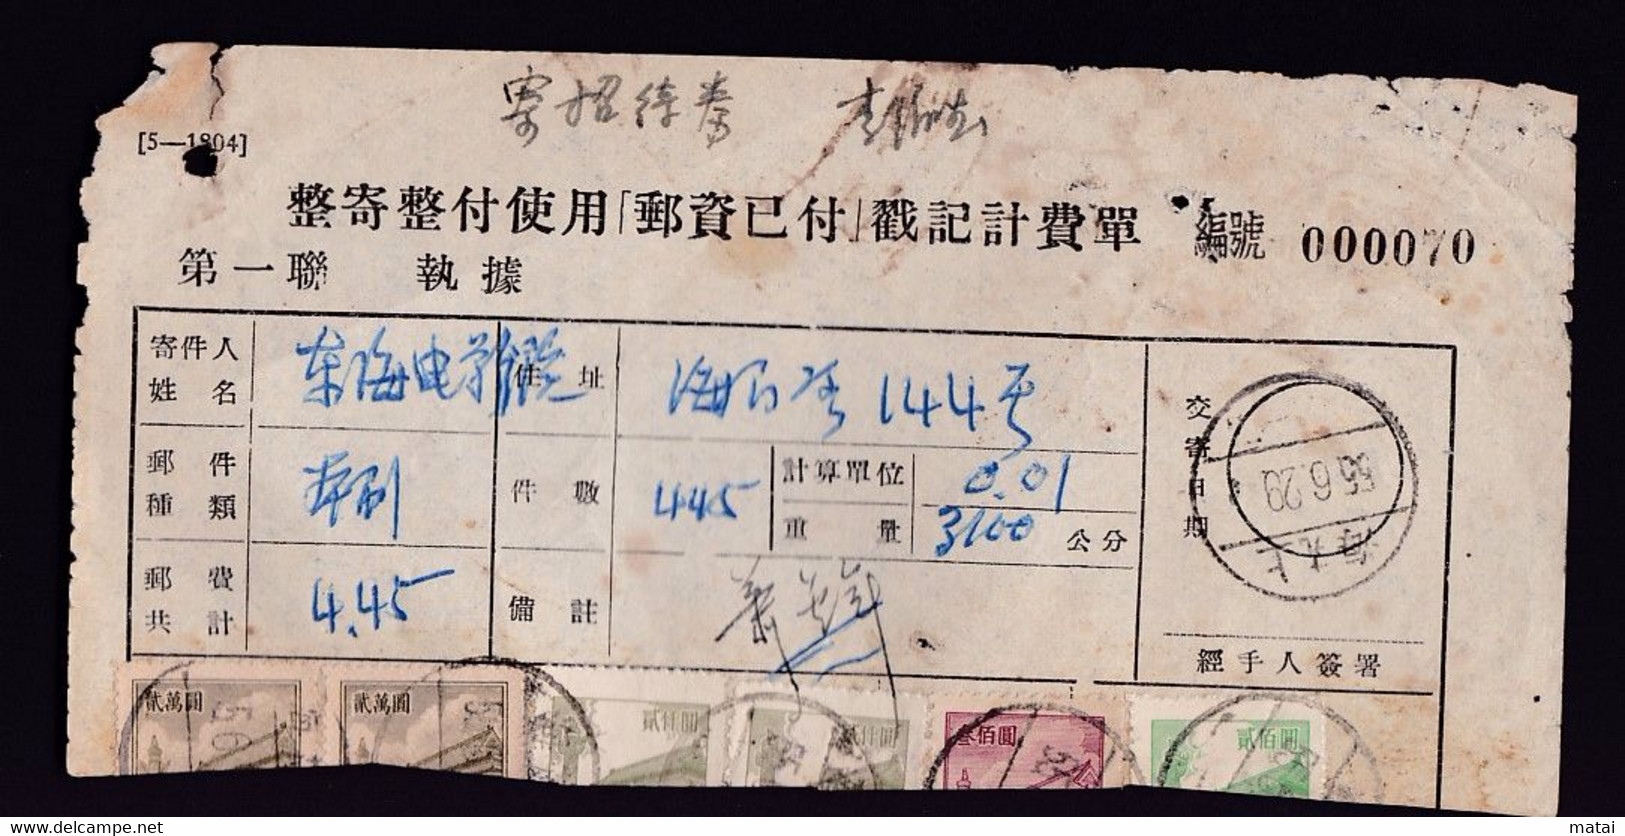 寄招待券
[5—1804]
整寄整付使用「郵資已付」戳記計費單 編號 000070
第一聯 執據
寄件人姓名 东海电影院 住址 海门路144号
郵件種類 印刷 件數 445 計算單位 0.01
重量 3100 公分
交寄日期 55.6.29
上海
郵費共計 4.45 備註
經手人簽署
貳萬圓 貳萬圓 貳仟圓 貳仟圓 叁佰圓 貳佰圓
matai